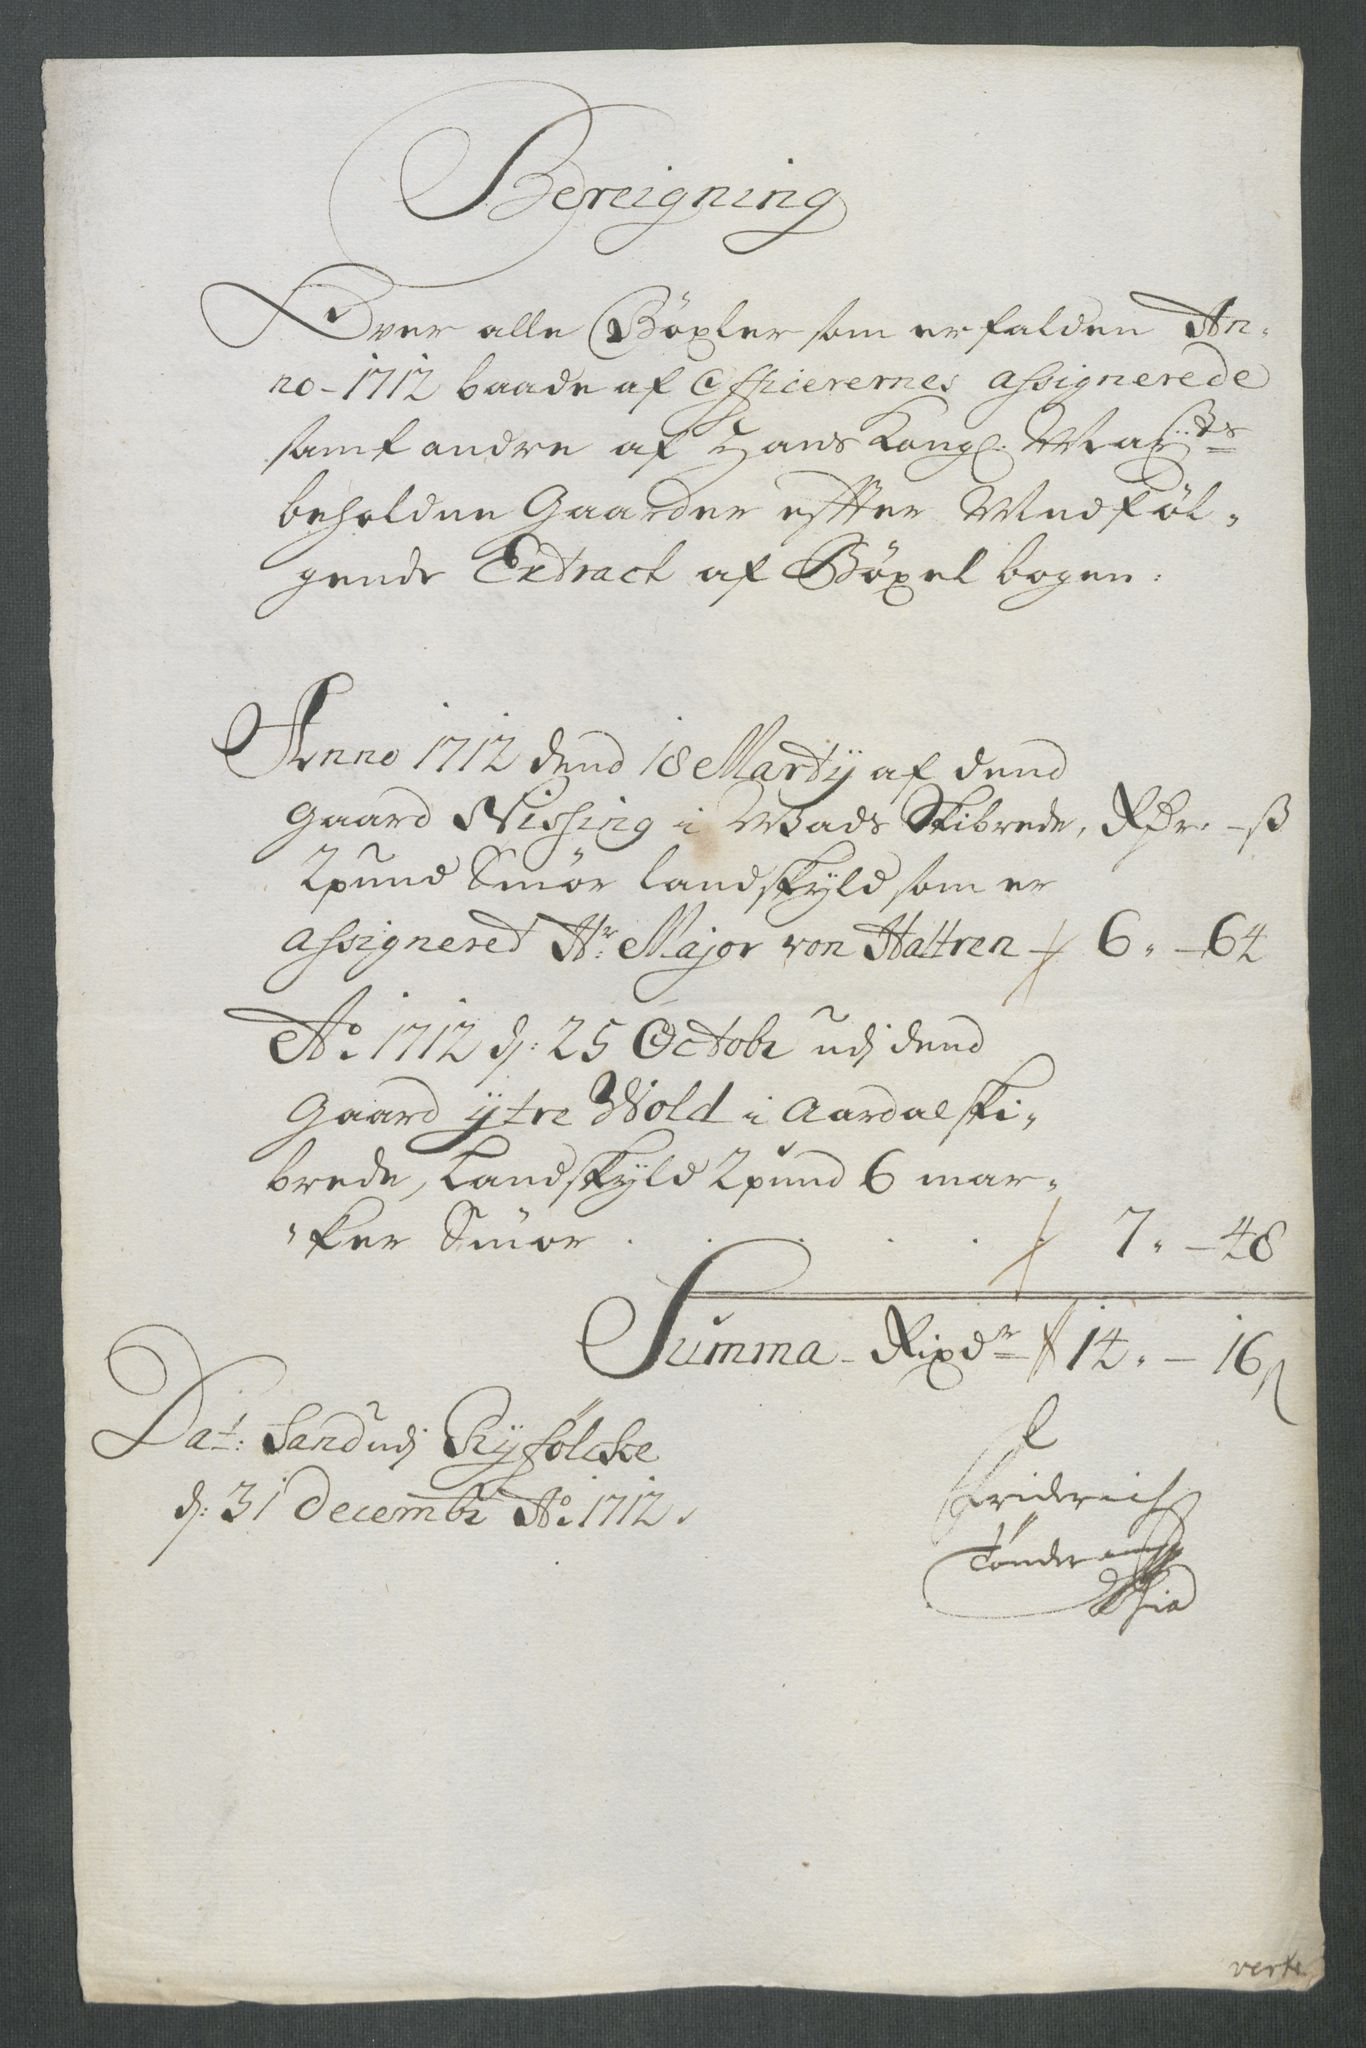 Bereigning
Over alle Böxler som er falden An-
no-1712 baade af Officerernes assignerede
samt andre af Hans Kongl. May:ts
beholdne Gaarder effter Medföl-
gende Extract af Böxel bogen:
Anno 1712 dend 18 Marty af dend
Gaard Nissing i Wads Skibrede, Rdr. - ß
2 pund Smör Landskyld som er
assigneret Hr: Major von Hattren 6 - 64
Ao: 1712 d: 25 Octobr udj dend
Gaard ytre Wold i Aardal ski-
brede, Landskyld 2 pund 6 mar-
ker Smör . . . . . 7 - 48
Summa - Rixdr 14 - 16 ß
Dat: Sand udj Ryfölcke
d: 31 Decembr Ao: 1712.
Friderich
Tönder
verte